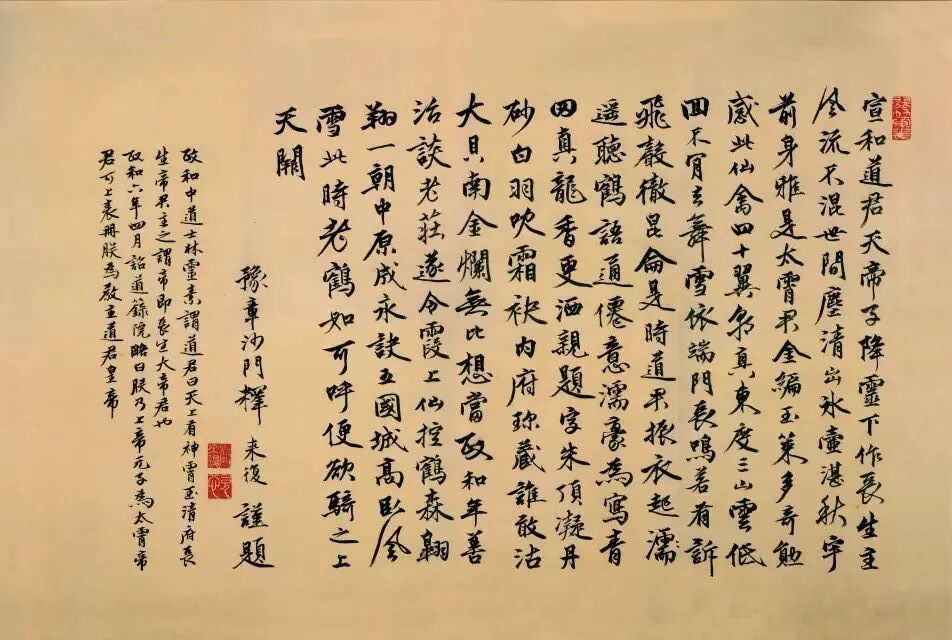 宣和道君天帝子降靈下作長生主
風流不混世間塵清出冰壺湛秋宇
前身雅是太霄君金編玉策多奇勳
感此仙禽四十翼朝真東度三山雲低
回不肯去舞雪依端門長鳴若有訴
飛聲徹昆侖是時道君振衣起濡
遥聽鶴語通僊意濡豪為寫青
田真龍香更洒親題字朱頂凝丹
砂白羽吹霜袂内府珎藏誰敢沽
大貝南金爛無比想當政和年善
治談老莊遂令霞上仙控鶴森翱
翔一朝中原成永訣五國城高臥風
雪此時老鶴如可呼便欲騎之上
天闕
豫章沙門釋來復謹題
政和中道士林靈素謂道君曰天上有神霄玉清府長
生帝君主之謂帝即長生大帝君也
政和六年四月詔道籙院略曰朕乃上帝元子為太霄帝
君可上表冊朕為教主道君皇帝